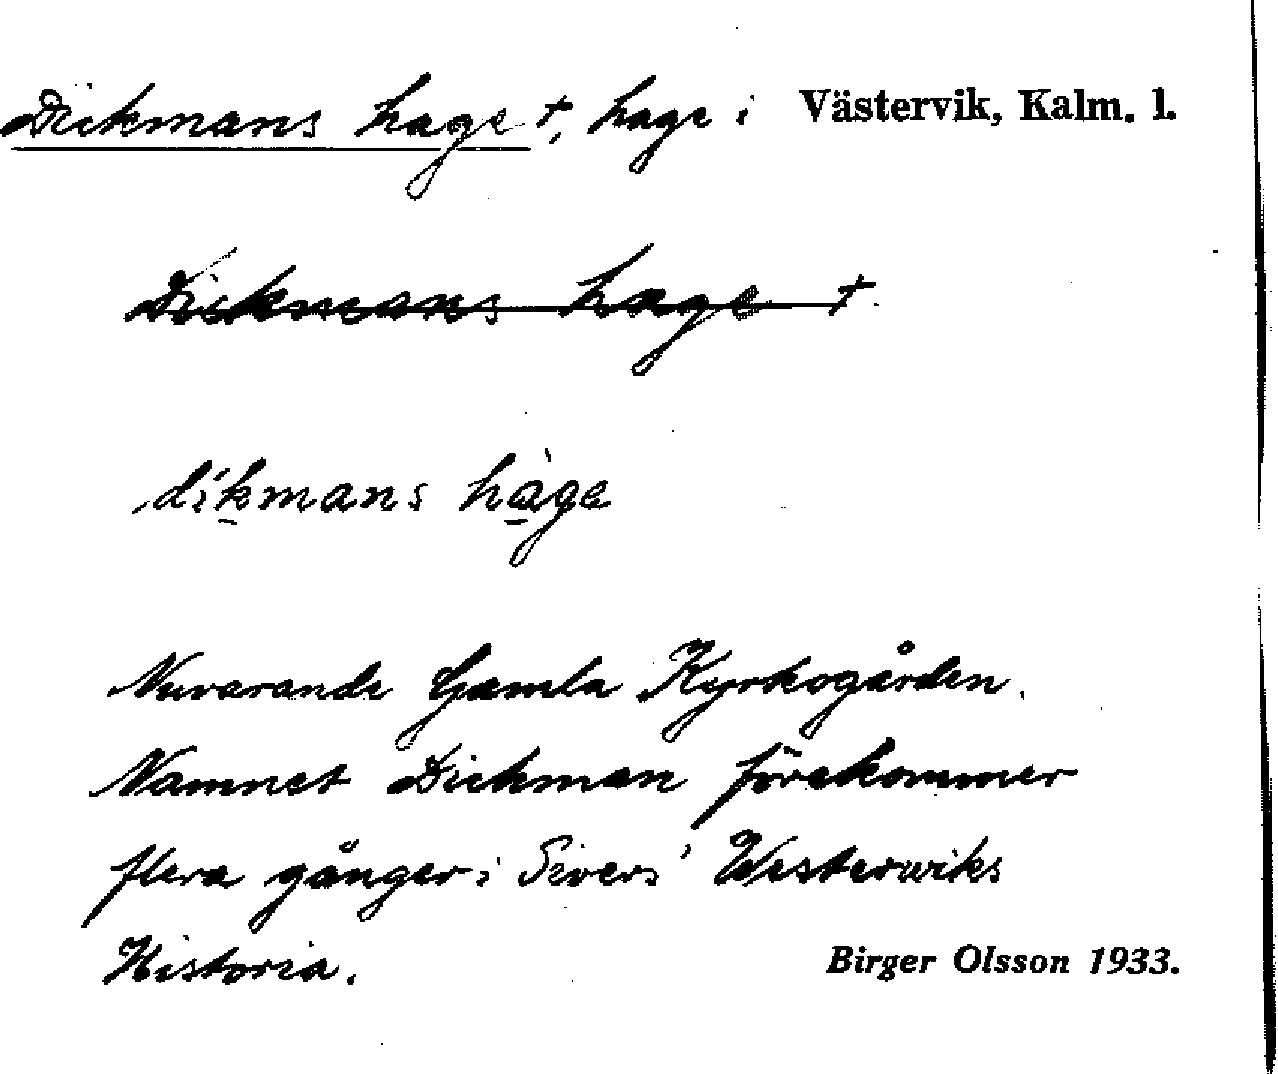 Dickmans hage †, hage i Västervik, Kalm. l.
Dickmans hage †
dikmans hàge
Nuvarande Gamla Kyrkogården.
Namnet Dickman förekommer
flera gånger i Sivers' Westerwiks
Historia.
Birger Olsson 1933.